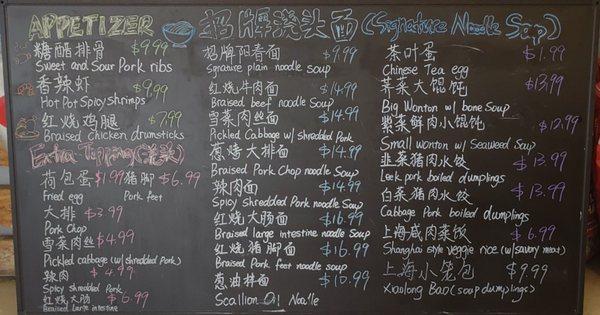 APPETIZER
糖醋排骨 $9.99
Sweet and Sour Pork ribs
香辣虾 $9.99
Hot Pot Spicy shrimps
红烧鸡腿 $7.99
Braised chicken drumsticks
Extra Topping (浇头)
荷包蛋 $1.99 猪脚 $6.99
Fried egg Pork feet
大排 $3.99
Pork Chop
雪菜肉丝 $4.99
Pickled cabbage (w/ shredded Pork)
辣肉 $4.99
Spicy shredded Pork
红烧大肠 $6.99
Braised Large intestine
招牌浇头面 (Signature Noodle Soup)
招牌阳春面 $9.99
Signature plain noodle soup
红烧牛肉面 $14.99
Braised beef noodle soup
雪菜肉丝面 $14.99
Pickled Cabbage w/ shredded Pork
葱烤大排面 $14.99
Braised Pork Chop noodle Soup
辣肉面 $14.99
Spicy shredded Pork noodle Soup
红烧大肠面 $16.99
Braised large intestine noodle Soup
红烧猪脚面 $16.99
Braised Pork feet noodle soup
葱油拌面 $10.99
Scallion Oil Noodle
茶叶蛋 $1.99
Chinese Tea egg
荠菜大馄饨 $13.99
Big Wonton w/ bone Soup
紫菜鲜肉小馄饨 $12.99
Small wonton w/ Seaweed Soup
韭菜猪肉水饺 $13.99
Leek pork boiled dumplings
白菜猪肉水饺 $13.99
Cabbage Pork boiled dumplings
上海咸肉菜饭 $6.99
Shanghai style veggie rice (w/ savory meat)
上海小笼包 $9.99
Xiaolong Bao (soup dumplings)